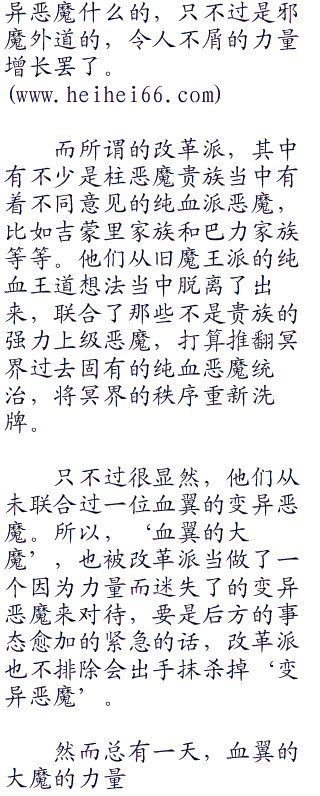 异恶魔什么的，只不过是邪
魔外道的，令人不屑的力量
增长罢了。
(www.heihei66.com)
而所谓的改革派，其中
有不少是柱恶魔贵族当中有
着不同意见的纯血派恶魔，
比如吉蒙里家族和巴力家族
等等。他们从旧魔王派的纯
血王道想法当中脱离了出
来，联合了那些不是贵族的
强力上级恶魔，打算推翻冥
界过去固有的纯血恶魔统
治，将冥界的秩序重新洗
牌。
只不过很显然，他们从
未联合过一位血翼的变异恶
魔。所以，‘血翼的大
魔’，也被改革派当做了一
个因为力量而迷失了的变异
恶魔来对待，要是后方的事
态愈加的紧急的话，改革派
也不排除会出手抹杀掉‘变
异恶魔’。
然而总有一天，血翼的
大魔的力量